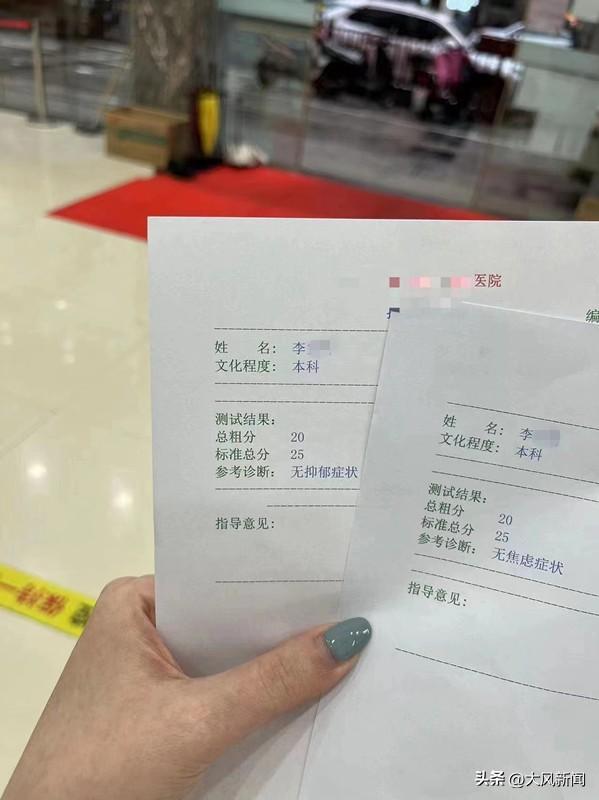 医院
编
姓 名: 李
文化程度: 本科
测试结果:
总粗分 20
标准总分 25
参考诊断: 无抑郁症状
指导意见:
姓 名: 李
文化程度: 本科
测试结果:
总粗分 20
标准总分 25
参考诊断: 无焦虑症状
指导意见:
头条 @大风新闻